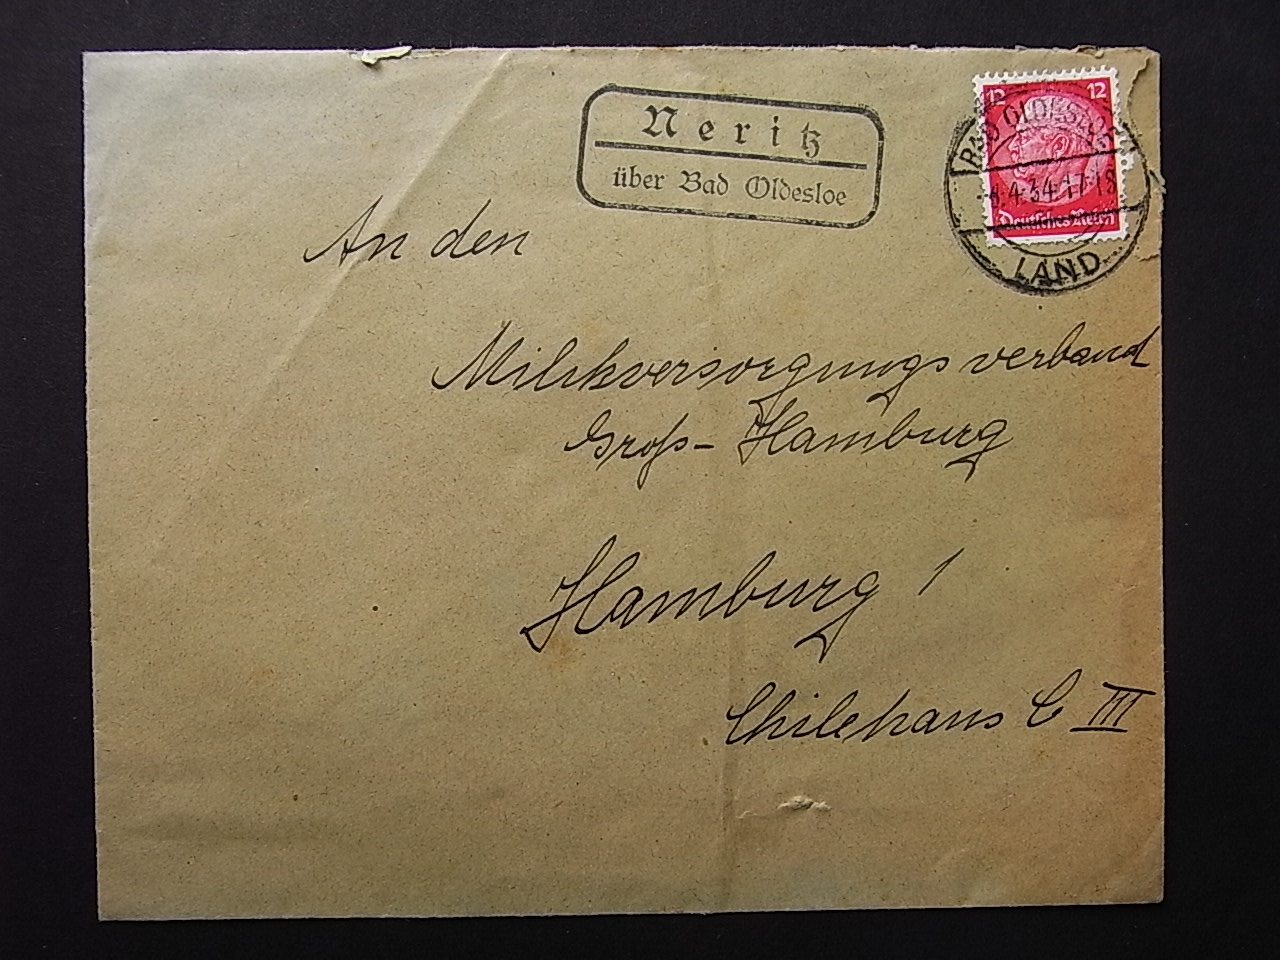 Neritz
über Bad Oldesloe
12 12
BAD OLDESLOE
4.34.17-18
Deutsches Reich
LAND
An den
Milchversorgungsverband
Groß-Hamburg
Hamburg 1
Chilehaus C III